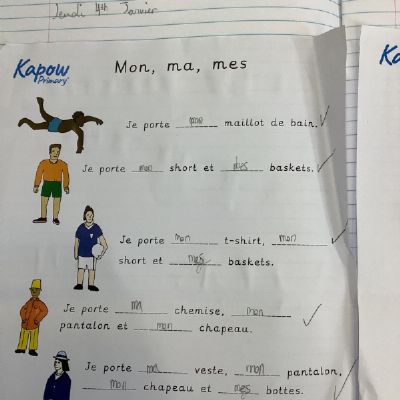 Jeudi 4th Janvier
Kapow
Primary
Mon, ma, mes
Je porte mon maillot de bain.
Je porte mon short et mes baskets.
Je porte mon t-shirt, mon
short et mes baskets.
Je porte ma chemise, mon
pantalon et mon chapeau.
Je porte ma veste, mon pantalon,
mon chapeau et mes bottes.